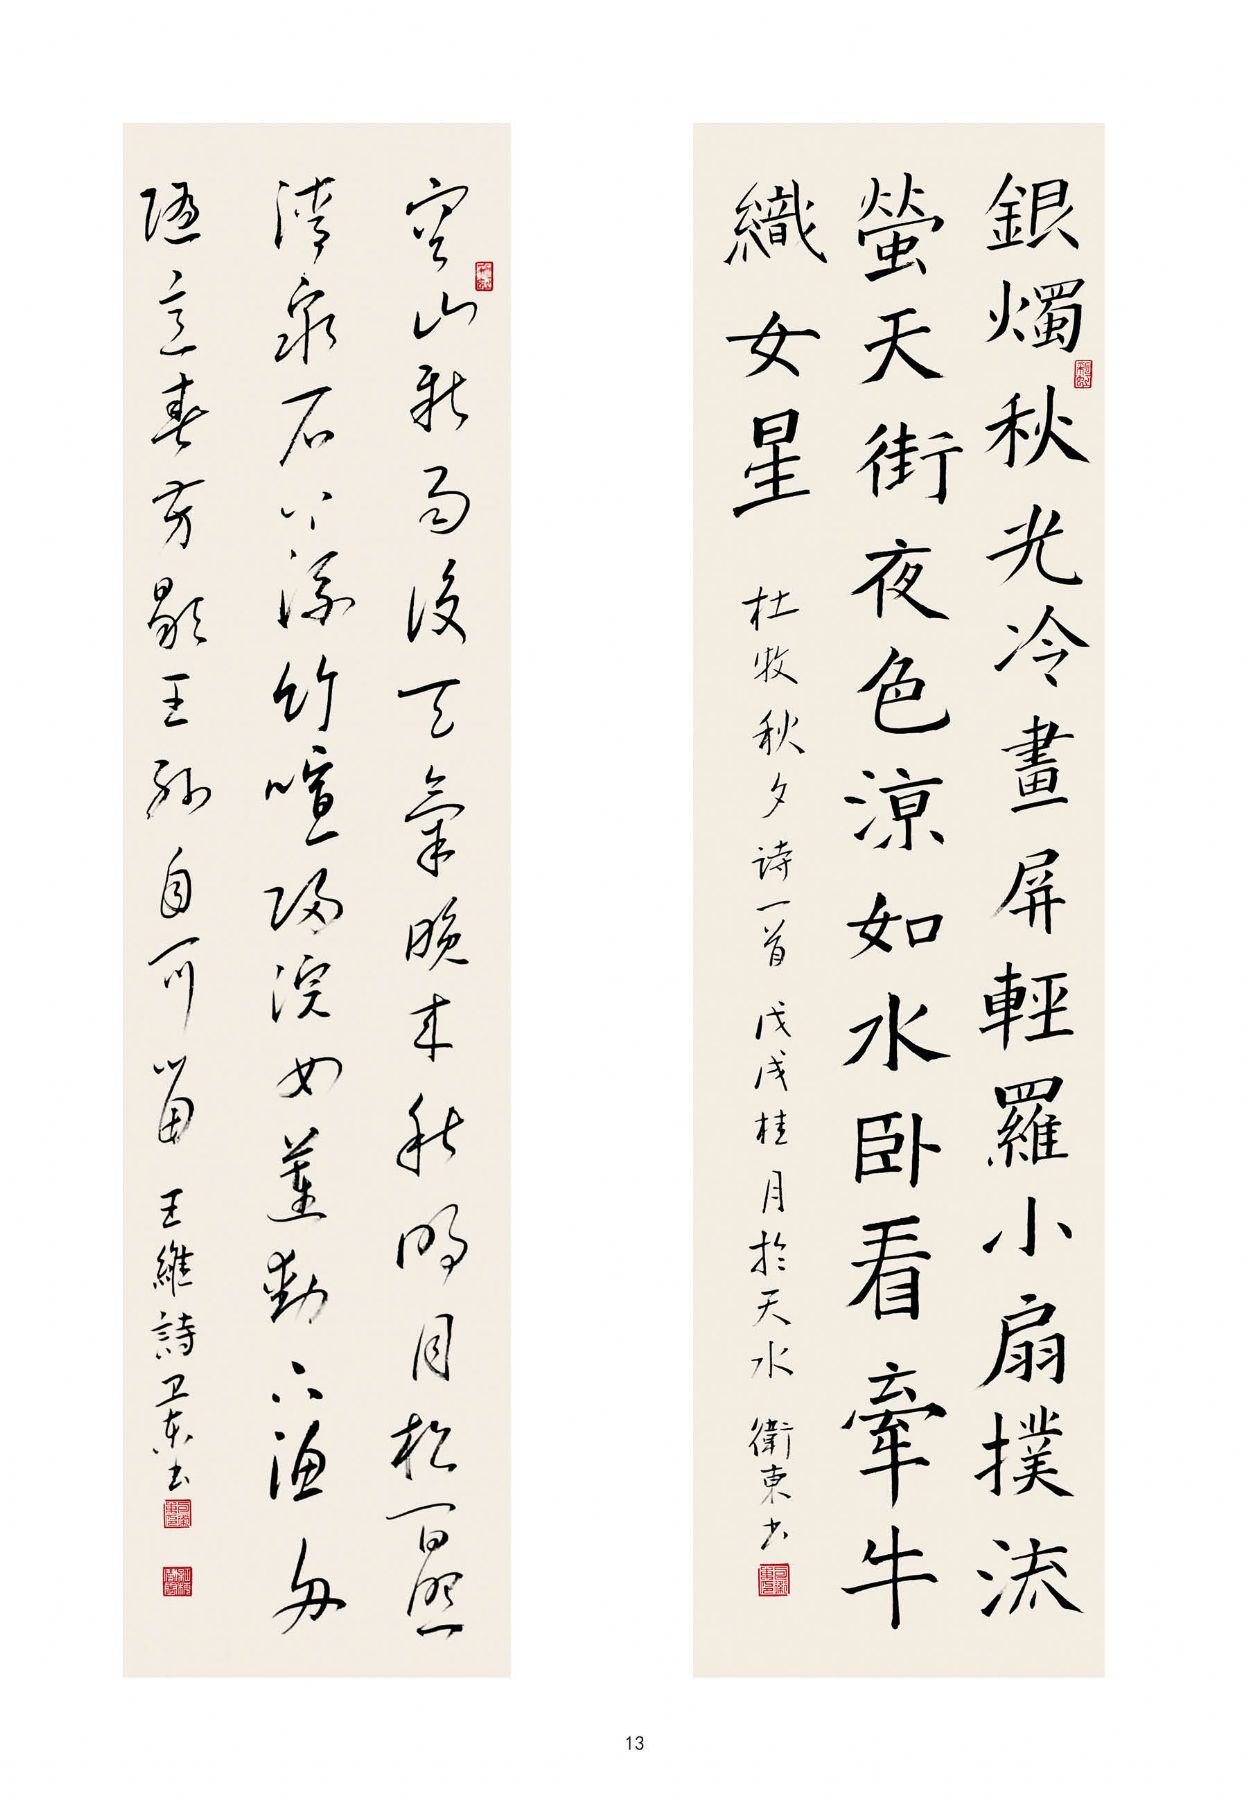 銀燭秋光冷畫屏輕羅小扇撲流
螢天街夜色涼如水卧看牽牛
織女星
杜牧秋夕诗一首 戊戌桂月於天水 衛東书
空山新雨後天氣晚来秋明月松間照
清泉石上流竹喧歸浣女蓮動下漁舟
随意春芳歇王孫自可留
王維詩卫东书
13